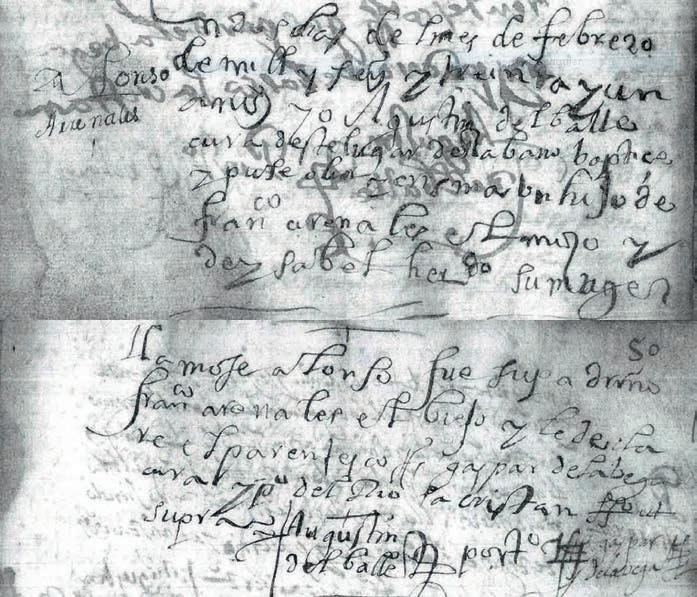 n dos dias de l mes de febrero
de mill y seis y treinta y un
Alfonso
Arenales
años yo Agustin del balle
cura deste lugar deslabano baptice
y puse olio y crisma a un hijo de
franco arenales el mozo y
de ysabel herdo su muger
llamose alfonso fue su padrino
franco arenales el biejo y le decla
re el parentesco ts gaspar de la bega
cura y po del Rio sacristan ffo ut
supra
Augustin
del balle
porto
gaspar
de la bega